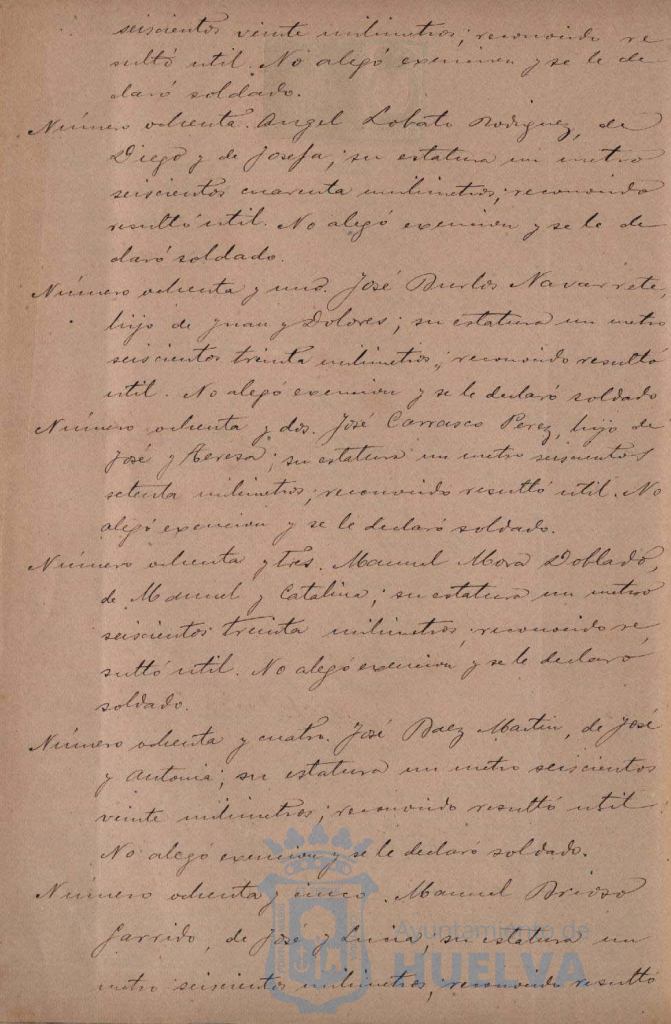 seiscientos veinte milimetros; reconocido re
sultó util. No alegó exencion y se le de
claró soldado.
Número ochenta. Angel Lobato Rodriguez, de
Diego y de Josefa; su estatura un metro
seiscientos cuarenta milimetros; reconocido
resultó util. No alegó exencion y se le de
claró soldado.
Número ochenta y uno. José Burlos Navarrete,
hijo de Juan y Dolores; su estatura un metro
seiscientos treinta milimetros; reconocido resultó
util. No alegó exencion y se le declaró soldado
Número ochenta y dos. José Carrasco Perez, hijo de
José y Teresa; su estatura un metro seiscientos
setenta milimetros; reconocido resultó util. No
alegó exencion y se le declaró soldado.
Número ochenta y tres. Manuel Mora Doblado,
de Manuel y Catalina; su estatura un metro
seiscientos treinta milimetros, reconocido re
sultó util. No alegó exencion y se le declaró
soldado.
Número ochenta y cuatro. José Baez Martin, de José
y Antonia; su estatura un metro seiscientos
veinte milimetros; reconocido resultó util.
No alegó exencion y se le declaró soldado.
Número ochenta y cinco. Manuel Brioso
Garrido, de José y Lucia, su estatura un
metro seiscientos milimetros, reconocido resultó
Ayuntamiento de
HUELVA